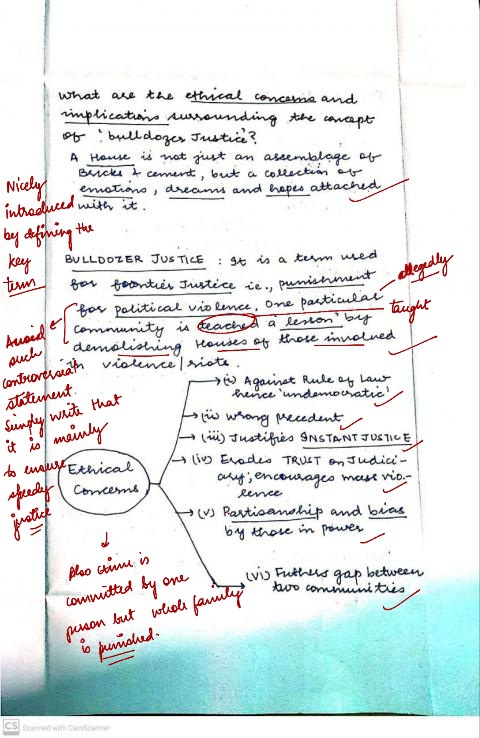 What are the ethical concerns and
implications surrounding the concept
of 'bulldozer Justice'?
A House is not just an assemblage of
Bricks & cement, but a collection of
emotions, dreams and hopes attached
with it.
Nicely
introduced
by defining the
key
term
BULLDOZER JUSTICE : It is a term used
for frontier Justice i.e., punishment
for political violence. One particular
community is teached a lesson' by
demolishing Houses of those involved
in violence/riots.
allegedly
taught
Avoid
such
controversial
statement.
Simply write that
it is mainly
to ensure
speedy
justice
Ethical
Concerns
(i) Against Rule of Law
hence 'undemocratic'
(ii) Wrong precedent
(iii) Justifies INSTANT JUSTICE
(iv) Erodes TRUST on Judici-
ary; encourages mass vio-
lence
(v) Partisanship and bias
by those in power
(vi) Futhers gap between
two communities
Also crime is
committed by one
person but whole family
is punished.
CS Scanned with CamScanner